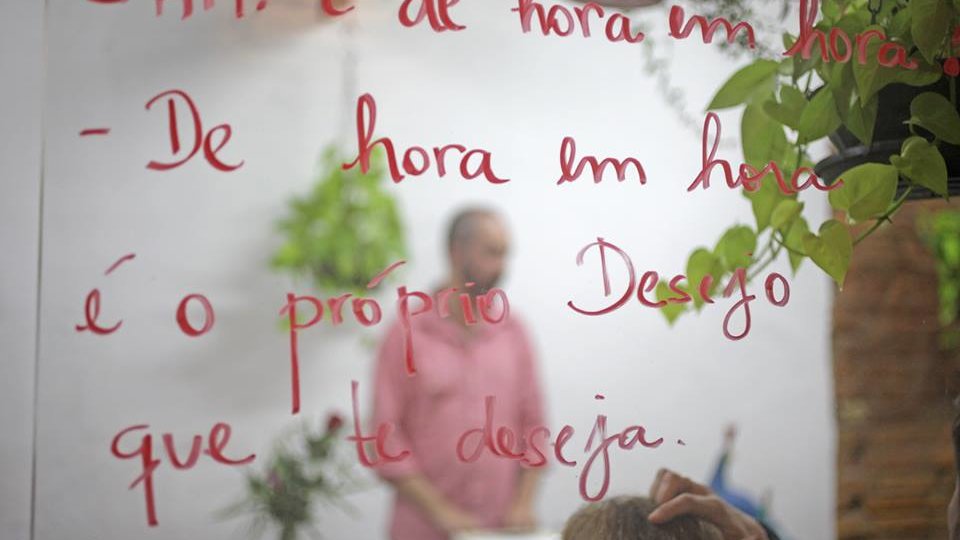 é de hora em hora!
- De hora em hora
é o próprio Desejo
que te deseja.